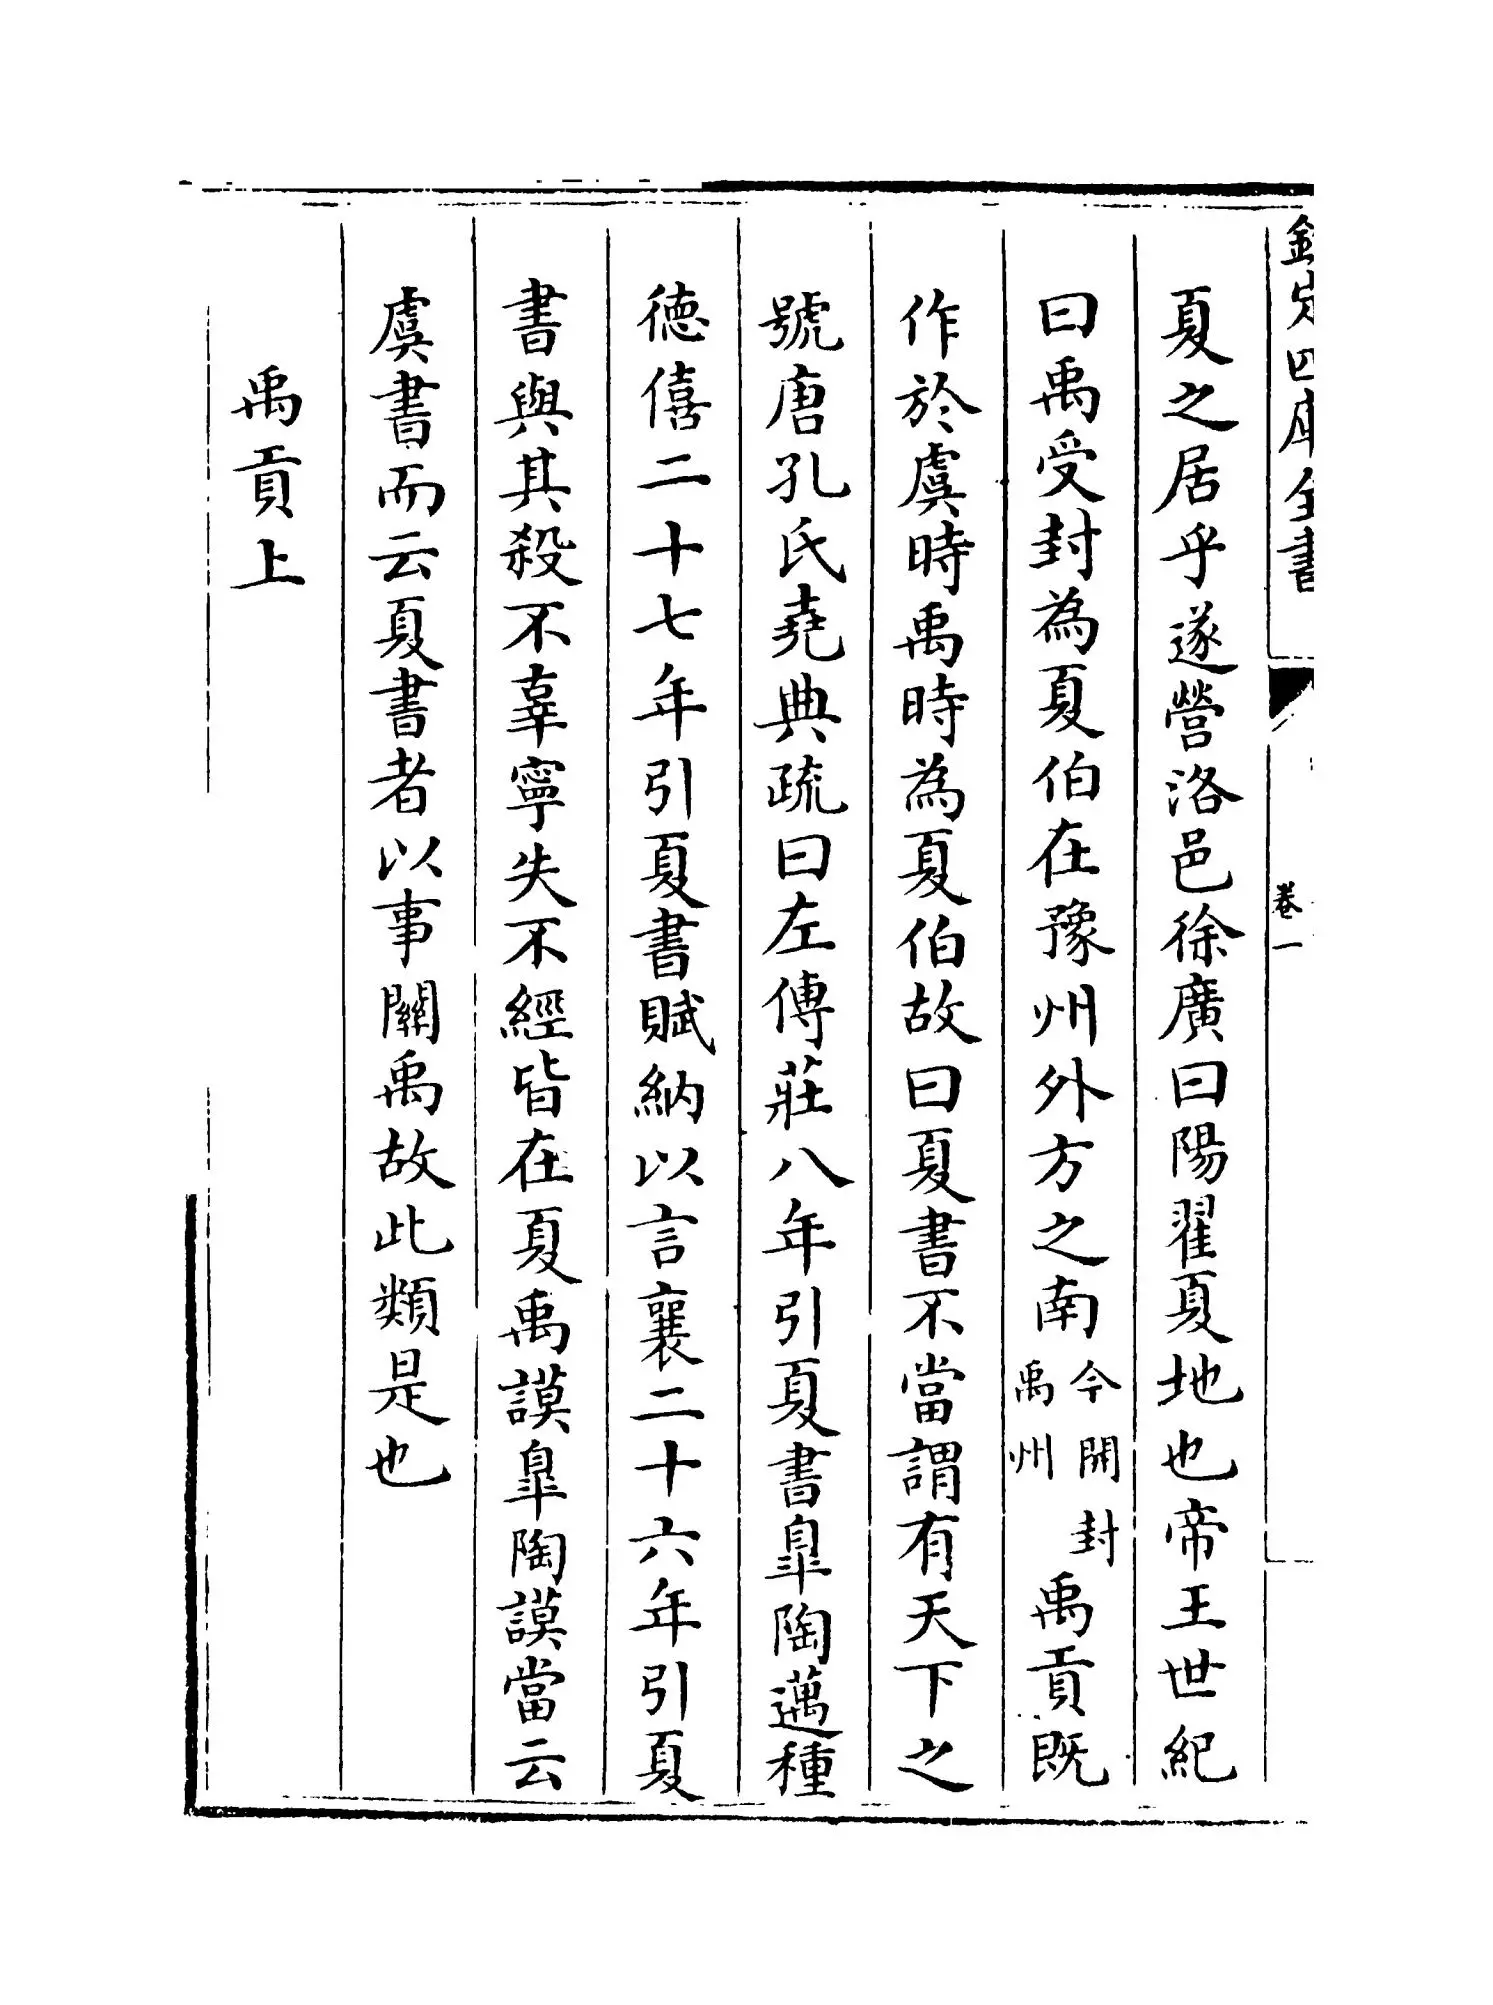 欽定四庫全書
卷一
夏之居乎遂營洛邑徐廣曰陽翟夏地也帝王世紀
曰禹受封為夏伯在豫州外方之南今開封禹州禹貢既
作於虞時禹時為夏伯故曰夏書不當謂有天下之
號唐孔氏堯典疏曰左傳莊八年引夏書臯陶邁種
德僖二十七年引夏書賦納以言襄二十六年引夏
書與其殺不辜寧失不經皆在夏禹謨臯陶謨當云
虞書而云夏書者以事關禹故此類是也
禹貢上